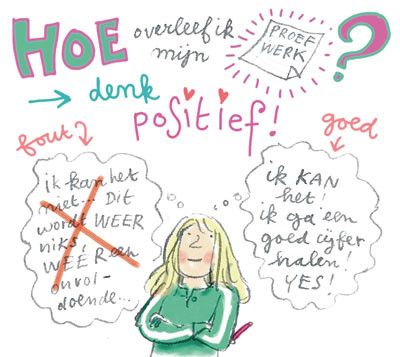 HOE overleef ik
mijn
PROEF
WERK
?
→ denk
positief!
fout?
goed
ik kan het
niet... Dit
wordt WEER
niks,
WEER een
onvol-
doende...
ik KAN
het!
ik ga een
goed cijfer
halen!
YES!